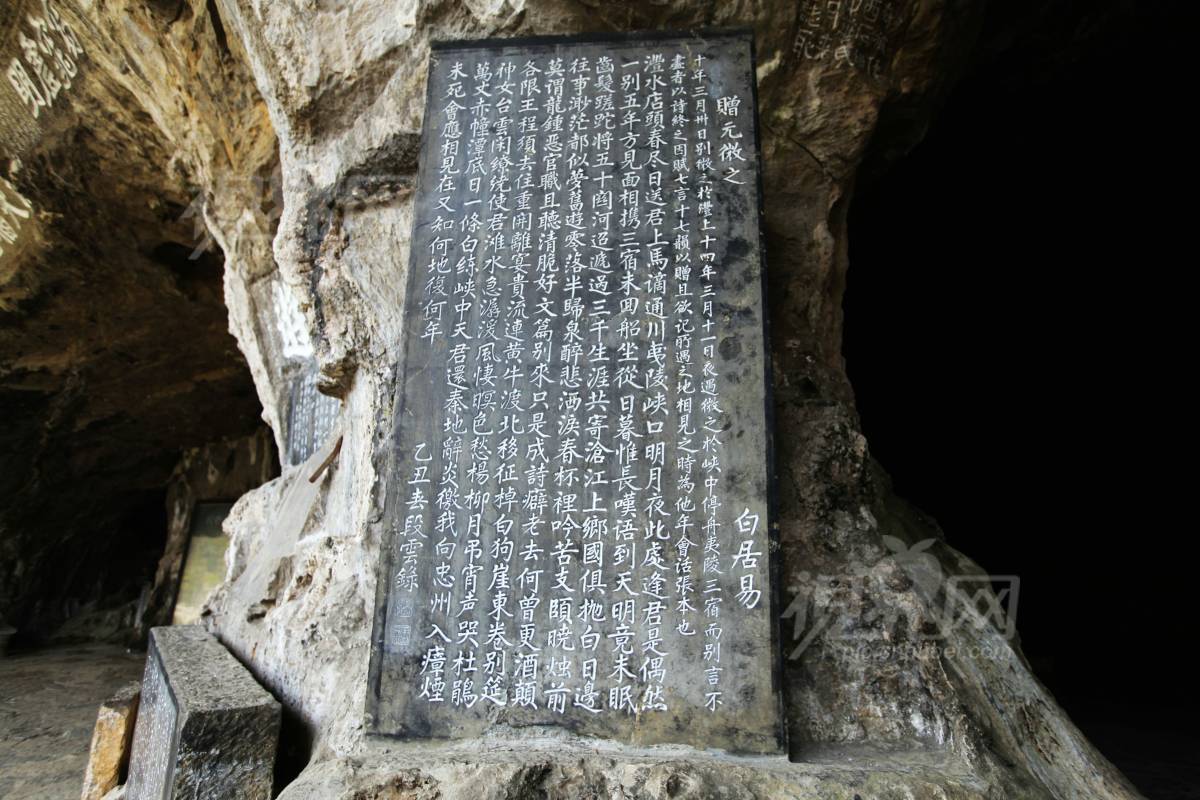 贈元微之 白居易
十年三月卅日別微之於灃上十四年三月十一日夜遇微之於峽中停舟夷陵三宿而別言不
盡者以詩終之因賦七言十七韻以贈且欲记所遇之地相見之時為他年會话張本也
灃水店頭春尽日送君上馬謫通川夷陵峽口明月夜此處逢君是偶然
一別五年方見面相携三宿未回船坐從日暮惟長嘆语到天明竟未眠
齒髮蹉跎將五十関河迢遞過三千生涯共寄滄江上鄉國俱抛白日邊
往事渺茫都似夢舊遊零落半歸泉醉悲洒淚春杯裡吟苦支頤曉烛前
莫谓龍鍾惡官職且聽清脆好文篇別來只是成詩癖老去何曾更酒顛
各限王程須去住重開離宴貴流連黃牛渡北移征棹白狗崖東卷別筵
神女台雲闲繚繞使君滩水急潺湲風悽暝色愁楊柳月弔宵声哭杜鵑
萬丈赤幢潭底日一條白练峽中天君還秦地辭炎徼我向忠州入瘴煙
未死會應相見在又知何地復何年
乙丑春段雲錄